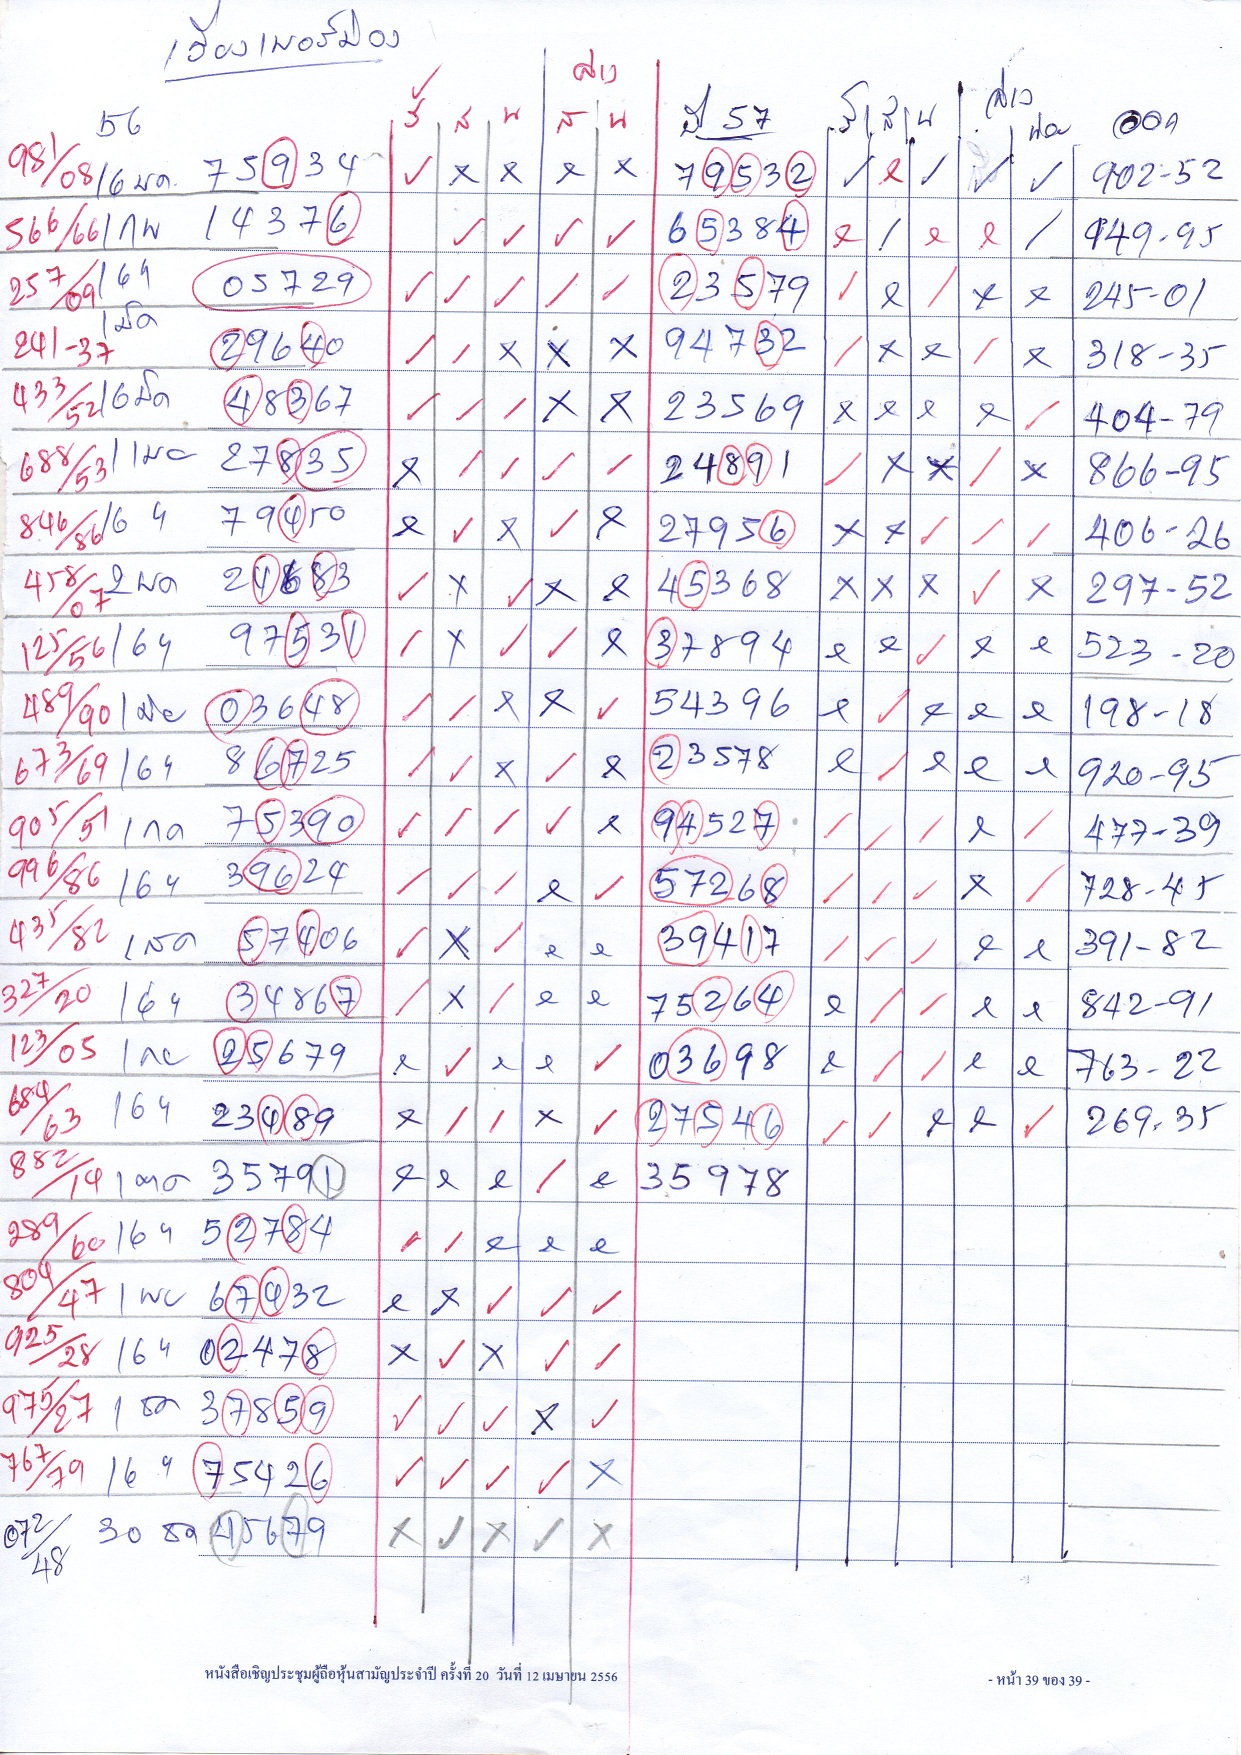 ล่าง
56 ร ส น ส น ปี 57 ร ส น ล่าง ออก
981/08 16 มค. 75934 ✓ x x x x 79532 ✓ x ✓ ✓ ✓ 902-52
566/66 1 กพ 14376 ✓ ✓ ✓ ✓ 65384 x / x x / 449-95
257/09 16 05729 ✓ ✓ ✓ ✓ ✓ 23579 ✓ x / x x 245-01
1 มีค
241-37 29640 ✓ ✓ x x x 94732 / x x / x 318-35
433/52 16 มีค 48367 ✓ ✓ ✓ x x 23569 x x x x / 404-79
688/53 1 เมย 27835 x ✓ ✓ ✓ ✓ 24891 / x x / x 866-95
846/86 16 79450 x ✓ x ✓ x 27956 x x ✓ ✓ ✓ 406-26
458/07 2 พค 24683 ✓ x ✓ x x 45368 x x x ✓ x 297-52
125/56 16 97531 ✓ x ✓ ✓ x 37894 x x ✓ x x 523-20
489/90 1 มิย 03648 ✓ ✓ x x ✓ 54396 x ✓ x x x 198-18
673/69 16 86725 ✓ ✓ x ✓ x 23578 x ✓ x x x 920-95
905/51 1 กค 75390 ✓ ✓ ✓ ✓ x 94527 / / / x / 477-39
996/86 16 39624 ✓ ✓ ✓ x ✓ 57268 / / / x / 728-45
435/82 1 สค 57406 ✓ x ✓ x x 39417 / / / x x 391-82
327/20 16 34867 / x / x x 75264 x / / x x 842-91
123/05 1 กย 25679 x ✓ x x ✓ 03698 x / / x x 763-22
684/63 16 23489 x / / x ✓ 27546 ✓ ✓ x x ✓ 269-35
882/14 1 ตค 35791 x x x / x 35978
289/60 16 52784 ✓ ✓ x x x
804/47 1 พย 67432 x x ✓ ✓ ✓
925/28 16 02478 x ✓ x ✓ ✓
975/27 1 ธค 37859 ✓ ✓ ✓ x ✓
767/79 16 75426 ✓ ✓ ✓ ✓ x
072/48 30 ธค 45679 x ✓ x ✓ x
หนังสือเชิญประชุมผู้ถือหุ้นสามัญประจำปี ครั้งที่ 20 วันที่ 12 เมษายน 2556 - หน้า 39 ของ 39 -